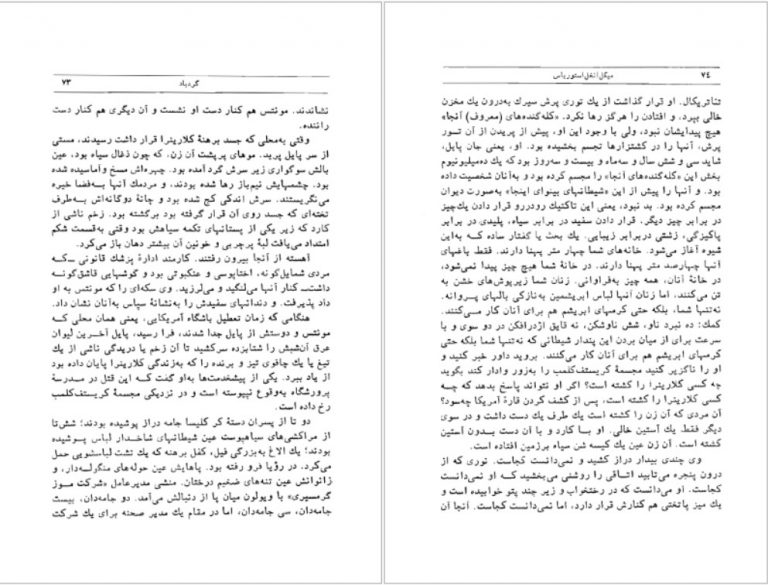 گردباد ۷۳
نشاندند. مونتس هم کنار دست او نشست و آن دیگری هم کنار دست
راننده.
وقتی به‌محلی که جسد برهنهٔ کلارینرا قرار داشت رسیدند، مستی
از سر پایل پرید. موهای پرپشت آن زن، که چون ذغال سیاه بود، عین
بالش سوگواری زیر سرش گرد آمده بود. چهره‌اش مسخ وآماسیده شده
بود. چشمهایش نیم‌باز رها شده بودند، و مردمك آنها به‌فضا خیره
می‌نگریستند. سرش اندکی کج شده بود و چانهٔ دوگانه‌اش به‌طرف
تخته‌ای که جسد روی آن قرار گرفته بود برگشته بود. زخم ناشی از
کارد که زیر یکی از پستانهای تکمه سیاهش بود وقتی به‌قسمت شکم
امتداد می‌یافت لبهٔ پرچربی و خونین آن بیشتر دهان باز می‌کرد.
آهسته از آنجا بیرون رفتند. کارمند ادارهٔ پزشك قانونی که
مردی شمایل‌گونه، اختاپوسی و عنکبوتی بود و گوشهایی قاشق‌گونه
داشت، کنار آنها می‌لنگید و می‌لرزید. وی سکه‌ای را که مونتس به او
داد پذیرفت. و دندانهای سفیدش را به‌نشانهٔ سپاس به‌آنان نشان داد.
هنگامی که زمان تعطیل باشگاه آمریکایی، یعنی همان محلی که
مونتس و دوستش از پایل جدا شدند، فرا رسید، پایل آخرین لیوان
عرق آن‌شبش را شتابزده سرکشید تا آن زخم یا دریدگی ناشی از یك
تیغ یا یك چاقوی تیز و برنده را که به‌زندگی کلارینرا پایان داده بود
از یاد ببرد. یکی از پیشخدمت‌ها به‌او گفت که این قتل در مدرسهٔ
پرورشگاه به‌وقوع نپیوسته است و در نزدیکی مجسمهٔ کریستف‌کلمب
رخ داده است.
دو تا از پسران دستهٔ کر کلیسا جامه دراز پوشیده بودند؛ شش‌تا
از مراکشی‌های سیاهپوست عین شیطانهای شاخدار لباس پوشیده
بودند؛ یك الاغ به‌بزرگی فیل، کفل برهنه که یك تشت لباسشویی حمل
می‌کرد. در رؤیا فرو رفته بود. پاهایش عین حوله‌های منگوله‌دار، و
زانوانش عین تنه‌های ضخیم درختان. منشی مدیرعامل «شرکت موز
گرمسیری» با ویولون میان پا از دنبالش می‌آمد. دو جامه‌دان، بیست
جامه‌دان، سی جامه‌دان، اما در مقام یك مدیر صحنه برای یك شرکت
۷۴ میگل آنخل استوریاس
تئاتریکال. او قرار گذاشت از یك توری پرش سیرك به‌درون یك مخزن
خالی بپرد. و افتادن را هرگز رها نکرد. «کله‌گنده‌های (معروف) آنجا»
هیچ پیدایشان نبود، ولی با وجود این او، پیش از پریدن از آن تور
پرش، آنها را در کشتزارها تجسم بخشیده بود. او، یعنی جان پایل،
شاید سی و شش سال و سه‌ماه و بیست و سه‌روز بود که یك ده‌میلیونیوم
بخش این «کله‌گنده‌های آنجا» را مجسم کرده بود و به‌آنان شخصیت داده
بود. و آنها را پیش از این «شیطانهای بینوای اینجا» به‌صورت دیوان
مجسم کرده بود. بد نبود، یعنی این تاکتیك رودررو قرار دادن یك‌چیز
در برابر چیز دیگر. قرار دادن سفید در برابر سیاه، پلیدی در برابر
پاکیزگی، زشتی دربرابر زیبایی. یك بحث یا گفتار ساده که به‌این
شیوه آغاز می‌شود. خانه‌های شما چهار متر پهنا دارند. فقط باغهای
آنها چهارصد متر پهنا دارند. در خانهٔ شما هیچ چیز پیدا نمی‌شود،
در خانهٔ آنان، همه چیز به‌فراوانی. زنان شما زیرپوش‌های خشن به
تن می‌کنند، اما زنان آنها لباس ابریشمین به‌نازکی بالهای پروانه.
نه‌تنها شما، بلکه حتی کرمهای ابریشم هم برای آنان کار می‌کنند.
کمك: ده نبرد ناو، شش ناوشکن، نه قایق اژدرافکن در دو سوی و با
سرعت برای از میان بردن این پندار شیطانی که نه‌تنها شما بلکه حتی
کرمهای ابریشم هم برای آنان کار می‌کنند. بروید داور خبر کنید و
او را ناگزیر کنید مجسمهٔ کریستف‌کلمب را به‌زور وادار کند بگوید
چه کسی کلارینرا را کشته است؟ اگر او نتواند پاسخ بدهد که چه
کسی کلارینرا را کشته است، پس از کشف کردن قارهٔ آمریکا چه‌سود؟
آن مردی که آن زن را کشته است یك طرف یك دست داشت و در سوی
دیگر فقط یك آستین خالی. او با کارد و با آن دست بدون آستین
کشته است. آن زن عین یك کیسه شن سیاه برزمین افتاده است.
وی چندی بیدار دراز کشید و نمی‌دانست کجاست. نوری که از
درون پنجره می‌تابید اتاقی را روشنی می‌بخشید که او نمی‌دانست
کجاست. او می‌دانست که در رختخواب و زیر چند پتو خوابیده است و
یك میز پاتختی هم کنارش قرار دارد، اما نمی‌دانست کجاست. آنجا آن